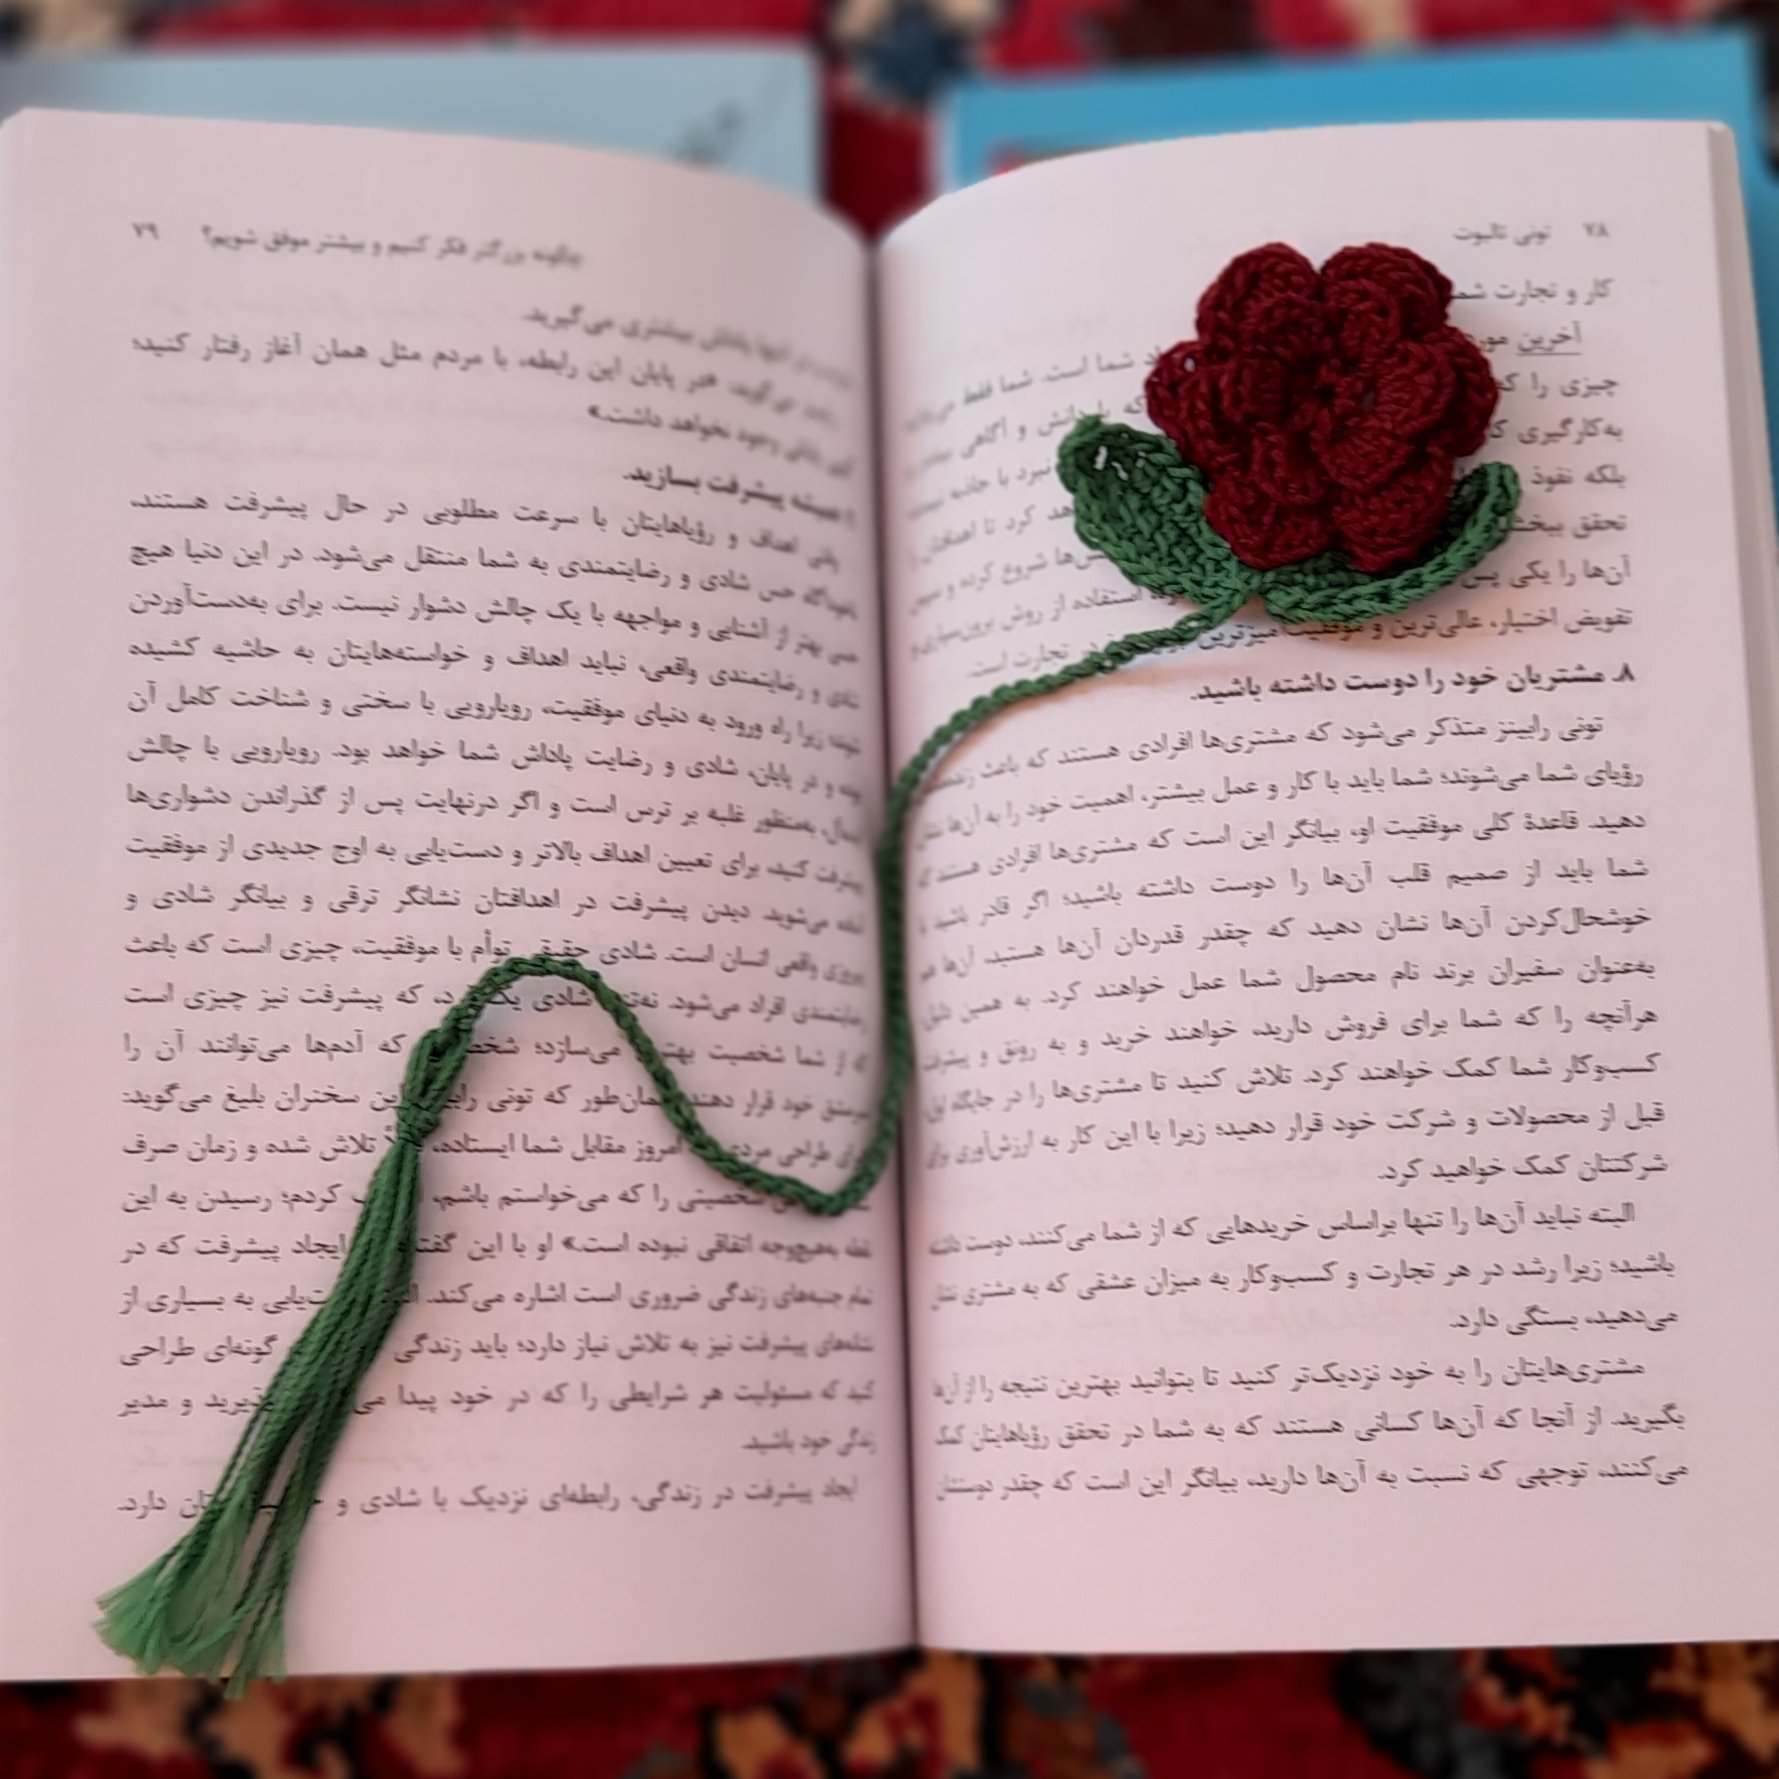 ۷۸ تونی تالبوت
کار و تجارت
آخرین
چیزی را شما است. شما فقط
به‌کارگیری که با دانش و آگاهی
بلکه نفوذ نبرد با جاذبه
تحقق کرد تا اهدافتان
آن‌ها را یکی پس شروع کرده و سپس
تفویض اختیار، عالی‌ترین و استفاده از روش برون‌سپاری و
در تجارت است.
۸. مشتریان خود را دوست داشته باشید.
تونی رابینز متذکر می‌شود که مشتری‌ها افرادی هستند که باعث
رؤیای شما می‌شوند؛ شما باید با کار و عمل بیشتر، اهمیت خود را به آن‌ها نشان
دهید. قاعدهٔ کلی موفقیت او، بیانگر این است که مشتری‌ها افرادی هستند که
شما باید از صمیم قلب آن‌ها را دوست داشته باشید؛ اگر قادر باشید با
خوشحال‌کردن آن‌ها نشان دهید که چقدر قدردان آن‌ها هستید، آن‌ها هم
به‌عنوان سفیران برند نام محصول شما عمل خواهند کرد. به همین دلیل
هرآنچه را که شما برای فروش دارید، خواهند خرید و به رونق و پیشرفت
کسب‌وکار شما کمک خواهند کرد. تلاش کنید تا مشتری‌ها را در جایگاه اول،
قبل از محصولات و شرکت خود قرار دهید؛ زیرا با این کار به ارزش‌آوری برای
شرکتتان کمک خواهید کرد.
البته نباید آن‌ها را تنها براساس خریدهایی که از شما می‌کنند، دوست داشته
باشید؛ زیرا رشد در هر تجارت و کسب‌وکار به میزان عشقی که به مشتری نشان
می‌دهید، بستگی دارد.
مشتری‌هایتان را به خود نزدیک‌تر کنید تا بتوانید بهترین نتیجه را از آن‌ها
بگیرید. از آنجا که آن‌ها کسانی هستند که به شما در تحقق رؤیاهایتان کمک
می‌کنند، توجهی که نسبت به آن‌ها دارید، بیانگر این است که چقدر دوستشان
چگونه بزرگتر فکر کنیم و بیشتر موفق شویم؟ ۷۹
بیشتری می‌گیرید.
می‌گوید: «در پایان این رابطه، با مردم مثل همان آغاز رفتار کنید؛
وجود نخواهد داشت.»
همیشه پیشرفت بسازید.
وقتی اهداف و رؤیاهایتان با سرعت مطلوبی در حال پیشرفت هستند،
ناخودآگاه حس شادی و رضایتمندی به شما منتقل می‌شود. در این دنیا هیچ
حسی بهتر از آشنایی و مواجهه با یک چالش دشوار نیست. برای به‌دست‌آوردن
شادی و رضایتمندی واقعی، نباید اهداف و خواسته‌هایتان به حاشیه کشیده
شوند؛ زیرا راه ورود به دنیای موفقیت، رویارویی با سختی و شناخت کامل آن
بوده و در پایان، شادی و رضایت پاداش شما خواهد بود. رویارویی با چالش
به‌منظور غلبه بر ترس است و اگر درنهایت پس از گذراندن دشواری‌ها
پیشرفت کنید، برای تعیین اهداف بالاتر و دست‌یابی به اوج جدیدی از موفقیت
آماده می‌شوید. دیدن پیشرفت در اهدافتان نشانگر ترقی و بیانگر شادی و
پیروزی واقعی انسان است. شادی حقیقی توأم با موفقیت، چیزی است که باعث
رضایتمندی افراد می‌شود. شادی که پیشرفت نیز چیزی است
که از شما شخصیت می‌سازد؛ که آدم‌ها می‌توانند آن را
سرمشق خود قرار دهند. همان‌طور که تونی این سخنران بلیغ می‌گوید:
طراحی امروز مقابل شما ایستاده، تلاش شده و زمان صرف
شخصیتی را که می‌خواستم باشم، کردم؛ رسیدن به این
نقطه به‌هیچ‌وجه اتفاقی نبوده است.» او با این ایجاد پیشرفت که در
تمام جنبه‌های زندگی ضروری است اشاره می‌کند. به بسیاری از
نشانه‌های پیشرفت نیز به تلاش نیاز دارد؛ باید زندگی گونه‌ای طراحی
کنید که مسئولیت هر شرایطی را که در خود پیدا و مدیر
زندگی خود باشید.
ایجاد پیشرفت در زندگی، رابطه‌ای نزدیک با شادی و دارد.